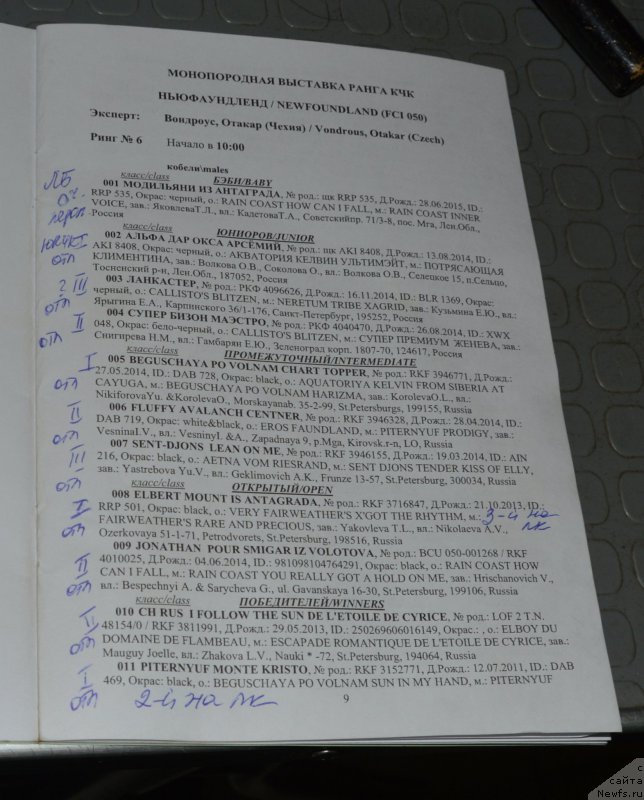 МОНОПОРОДНАЯ ВЫСТАВКА РАНГА КЧК
НЬЮФАУНДЛЕНД / NEWFOUNDLAND (FCI 050)
Эксперт: Вондроус, Отакар (Чехия) / Vondrous, Otakar (Czech)
Ринг № 6 Начало в 10:00
кобели\males
класс/class БЭБИ/BABY
ЛБ
001 МОДИЛЬЯНИ ИЗ АНТАГРАДА, № род.: щк RRP 535, Д.Рожд.: 28.06.2015, ID.:
RRP 535, Окрас: черный, о.: RAIN COAST HOW CAN I FALL, м.: RAIN COAST INNER
VOICE, зав.: ЯковлеваТ.Л., вл.: КадетоваТ.А., Советскийпр. 71/3-8, пос. Мга, Лен.Обл.,
Россия
класс/class ЮНИОРОВ/JUNIOR
002 АЛЬФА ДАР ОКСА АРСЕМИЙ, № род.: щк AKI 8408, Д.Рожд.: 13.08.2014, ID.:
AKI 8408, Окрас: черный, о.: АКВАТОРИЯ КЕЛВИН УЛЬТИМЭЙТ, м.: ПОТРЯСАЮЩАЯ
КЛИМЕНТИНА, зав.: Волкова О.В., Соколова О., вл.: Волкова О.В., Селецкое 15, п.Сельцо,
Тосненский р-н, Лен.Обл., 187052, Россия
отл
003 ЛАНКАСТЕР, № род.: РКФ 4096626, Д.Рожд.: 16.11.2014, ID.: BLR 1369, Окрас:
черный, о.: CALLISTO'S BLITZEN, м.: NERETUM TRIBE XAGRID, зав.: Кузьмина Е.Ю., вл.:
Ярыгина Е.А., Карпинского 36/1-176, Санкт-Петербург, 195252, Россия
III
отл
004 СУПЕР БИЗОН МАЭСТРО, № род.: РКФ 4040470, Д.Рожд.: 26.08.2014, ID.: XWX
048, Окрас: бело-черный, о.: CALLISTO'S BLITZEN, м.: СУПЕР ПРЕМИУМ ЖЕНЕВА, зав.:
Снигирева Н.М., вл.: Гамбарян Е.Ю., Зеленоград корп. 1807-70, 124617, Россия
II
отл
класс/class ПРОМЕЖУТОЧНЫЙ/INTERMEDIATE
I
005 BEGUSCHAYA PO VOLNAM CHART TOPPER, № род.: RKF 3946771, Д.Рожд.:
27.05.2014, ID.: DAB 728, Окрас: black, о.: AQUATORIYA KELVIN FROM SIBERIA AT
CAYUGA, м.: BEGUSCHAYA PO VOLNAM HARIZMA, зав.: KorolevaO.L., вл.:
NikiforovaYu. &KorolevaO., Morskayanab. 35-2-99, St.Petersburgs, 199155, Russia
отл
006 FLUFFY AVALANCH CENTNER, № род.: RKF 3946328, Д.Рожд.: 28.04.2014, ID.:
DAB 719, Окрас: white&black, о.: EROS FAUNDLAND, м.: PITERNYUF PRODIGY, зав.:
VesninaI.V., вл.: VesninyI. &A., Zapadnaya 9, p.Mga, Kirovsk.r-n, LO, Russia
II
отл
007 SENT-DJONS LEAN ON ME, № род.: RKF 3946155, Д.Рожд.: 19.03.2014, ID.: AIN
216, Окрас: black, о.: AETNA VOM RIESRAND, м.: SENT DJONS TENDER KISS OF ELLY,
зав.: Yastrebova Yu.V., вл.: Geklimovich A.K., Frunze 13-57, St.Petersburg, 300034, Russia
III
отл
класс/class ОТКРЫТЫЙ/OPEN
008 ELBERT MOUNT IS ANTAGRADA, № род.: RKF 3716847, Д.Рожд.: 21.10.2013, ID.:
RRP 501, Окрас: black, о.: VERY FAIRWEATHER'S X'GOT THE RHYTHM, м.: 3-й на
FAIRWEATHER'S RARE AND PRECIOUS, зав.: Yakovleva T.L., вл.: Nikolaeva A.V., ЛК
Ozerkovaya 51-1-71, Petrodvorets, St.Petersburg, 198516, Russia
I
отл
009 JONATHAN POUR SMIGAR IZ VOLOTOVA, № род.: BCU 050-001268 / RKF
4010025, Д.Рожд.: 04.06.2014, ID.: 981098104764291, Окрас: black, о.: RAIN COAST HOW
CAN I FALL, м.: RAIN COAST YOU REALLY GOT A HOLD ON ME, зав.: Hrischanovich V.,
вл.: Bespechnyi A. & Sarycheva G., ul. Gavanskaya 16-30, St.Petersburg, 199106, Russia
II
отл
класс/class ПОБЕДИТЕЛЕЙ/WINNERS
010 CH RUS I FOLLOW THE SUN DE L'ETOILE DE CYRICE, № род.: LOF 2 T.N.
48154/0 / RKF 3811991, Д.Рожд.: 29.05.2013, ID.: 250269606016149, Окрас.: , о.: ELBOY DU
DOMAINE DE FLAMBEAU, м.: ESCAPADE ROMANTIQUE DE L'ETOILE DE CYRICE, зав.:
Mauguy Joelle, вл.: Zhakova L.V., Nauki * -72, St.Petersburg, 194064, Russia
II
отл
011 PITERNYUF MONTE KRISTO, № род.: RKF 3152771, Д.Рожд.: 12.07.2011, ID.: DAB
469, Окрас: black, о.: BEGUSCHAYA PO VOLNAM SUN IN MY HAND, м.: PITERNYUF
I
отл 2-й на ЛК
9
с
сайта
Newfs.ru